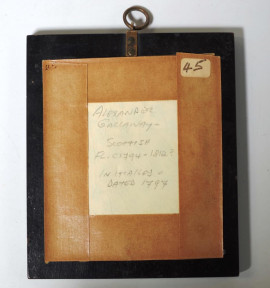 45
ALEXANDER
GALLAWAY-
SCOTTISH
FL. C1794-1812
INITIALED &
DATED 1797